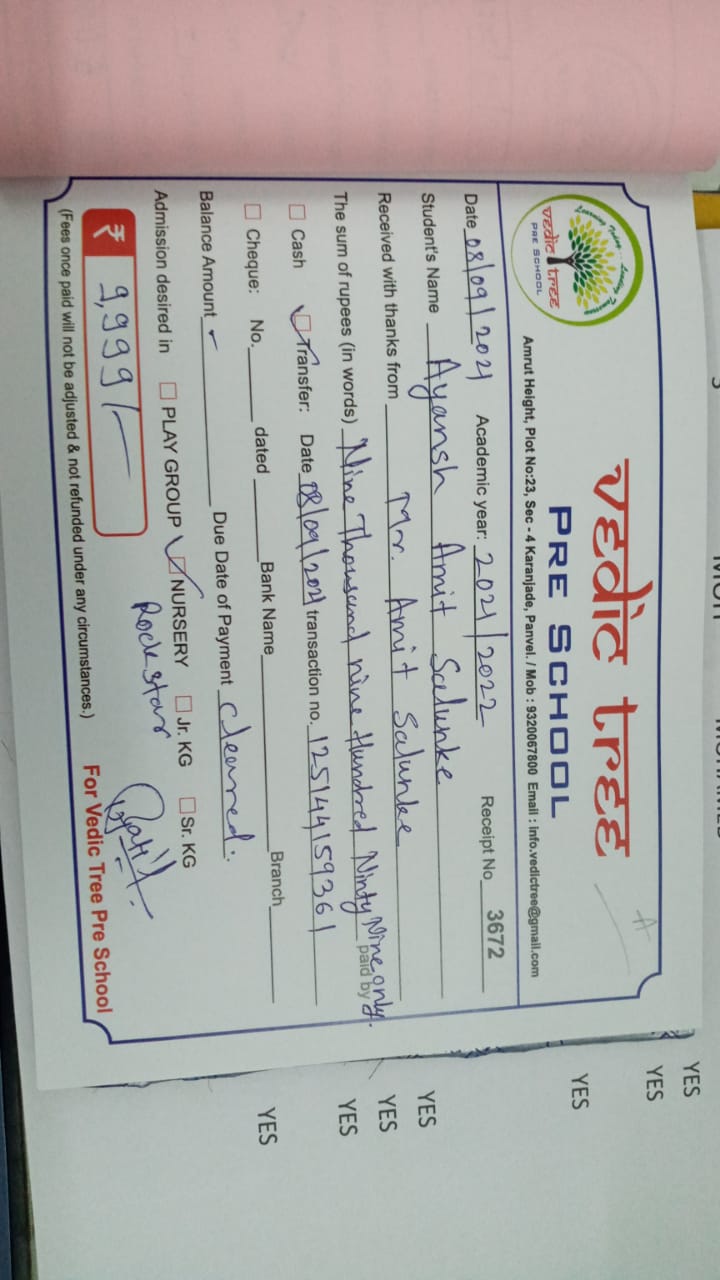 Learning Nature... Loving Tomorrow
vedic tree
PRE SCHOOL
vedic tree
PRE SCHOOL
A
Amrut Height, Plot No:23, Sec - 4 Karanjade, Panvel. / Mob : 9320067800 Email : info.vedictree@gmail.com
Date 08/09/2021 Academic year: 2021/2022 Receipt No 3672
Student's Name Ayansh Amit Salunke
Received with thanks from Mr. Amit Salunke
The sum of rupees (in words) Nine Thousand nine Hundred Ninty Nine only. paid by
Cash Transfer: Date 08/09/2021 transaction no. 125144159361
Cheque: No. dated Bank Name Branch
Balance Amount Due Date of Payment cleared.
Admission desired in PLAY GROUP NURSERY Jr. KG Sr. KG
Rockstar
₹ 9,999/-
For Vedic Tree Pre School
(Fees once paid will not be adjusted & not refunded under any circumstances.)
YES
YES
YES
YES
YES
YES
YES